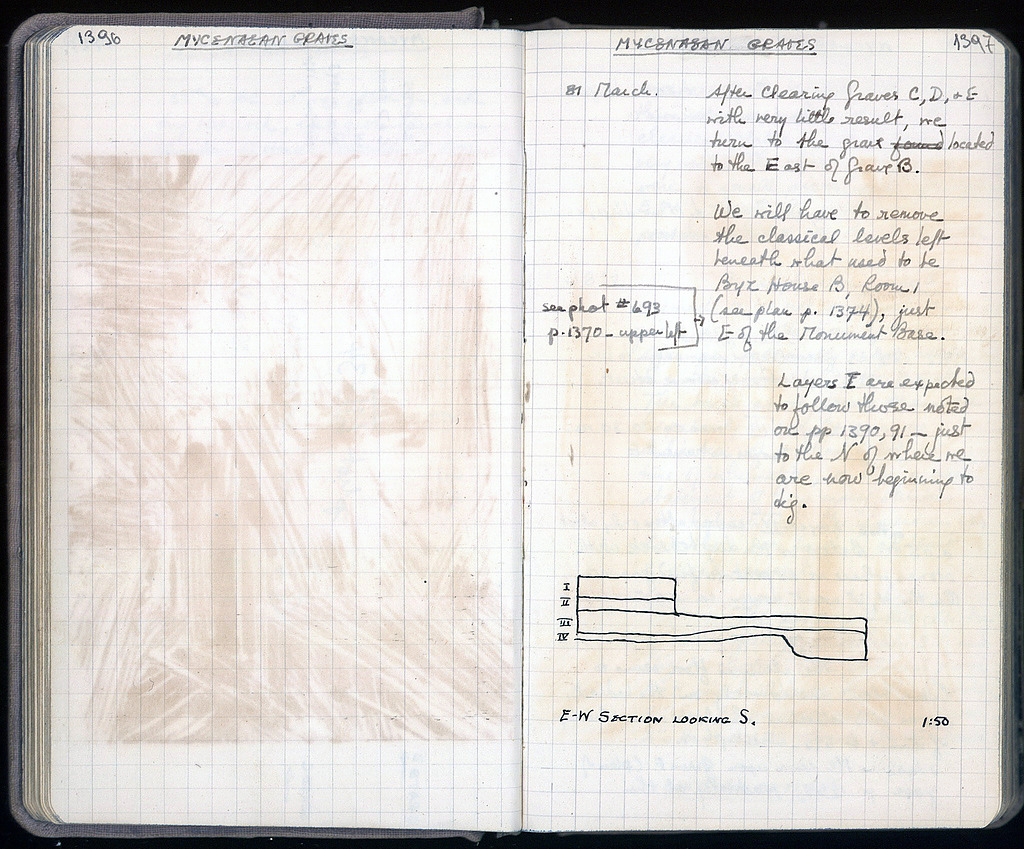 1396
MYCENAEAN GRAVES
MYCENAEAN GRAVES
1397
31 March.
After clearing Graves C, D, + E
with very little result, we
turn to the grave found located
to the East of Grave B.
We will have to remove
the classical levels left
beneath what used to be
Byz House B, Room 1
(see plan p. 1374), just
E of the Monument Base.
see phot # 693
p. 1370 - upper left
Layers I are expected
to follow those noted
on pp 1390, 91 - just
to the N of where we
are now beginning to
dig.
I
II
III
IV
E-W SECTION LOOKING S.
1:50